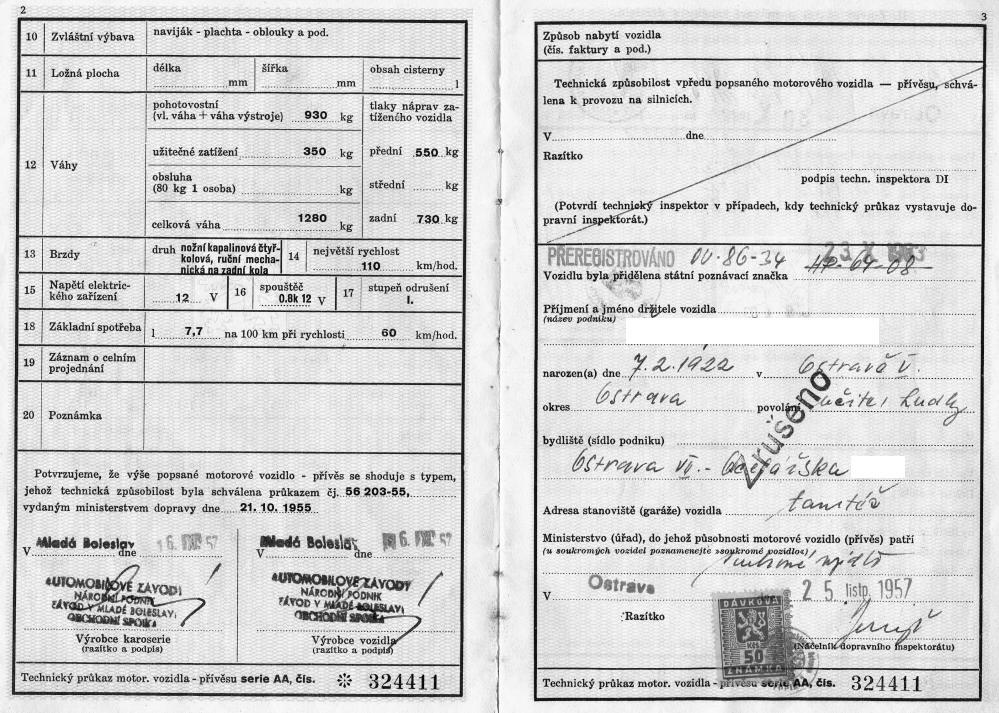 2
10 Zvláštní výbava naviják - plachta - oblouky a pod.
11 Ložná plocha délka mm šířka mm obsah cisterny l
12 Váhy
pohotovostní
(vl. váha + váha výstroje) 930 kg
tlaky náprav za-
tíženého vozidla
užitečné zatížení 350 kg přední 550 kg
obsluha
(80 kg 1 osoba) kg střední kg
celková váha 1280 kg zadní 730 kg
13 Brzdy druh nožní kapalinová čtyř-
kolová, ruční mecha-
nická na zadní kola
14 největší rychlost
110 km/hod.
15 Napětí elektric-
kého zařízení 12 V
16 spouštěč
0.8k 12 V
17 stupeň odrušení
I.
18 Základní spotřeba l 7,7 na 100 km při rychlosti 60 km/hod.
19 Záznam o celním
projednání
20 Poznámka
Potvrzujeme, že výše popsané motorové vozidlo - přívěs se shoduje s typem,
jehož technická způsobilost byla schválena průkazem čj. 56 203-55,
vydaným ministerstvem dopravy dne 21. 10. 1955
V Mladá Boleslav dne 16. 57
AUTOMOBILOVÉ ZÁVODY
NÁRODNÍ PODNIK
ZÁVOD V MLADÉ BOLESLAVI
OBCHODNÍ SPOJKA
Výrobce karoserie
(razítko a podpis)
V Mladá Boleslav dne 16. 57
AUTOMOBILOVÉ ZÁVODY
NÁRODNÍ PODNIK
ZÁVOD V MLADÉ BOLESLAVI
OBCHODNÍ SPOJKA
Výrobce vozidla
(razítko a podpis)
Technický průkaz motor. vozidla - přívěsu serie AA, čís. ✻ 324411
3
Způsob nabytí vozidla
(čís. faktury a pod.)
Technická způsobilost vpředu popsaného motorového vozidla — přívěsu, schvá-
lena k provozu na silnicích.
V dne
Razítko
podpis techn. inspektora DI
(Potvrdí technický inspektor v případech, kdy technický průkaz vystavuje do-
pravní inspektorát.)
PŘEREGISTROVÁNO OV-86-34 23 X 1963
Vozidlu byla přidělena státní poznávací značka HP-64-08
Příjmení a jméno držitele vozidla
(název podniku)
narozen(a) dne 7.2.1922 v Ostravě V.
okres Ostrava povolání učitel hudby
Zrušeno
bydliště (sídlo podniku)
Ostrava VI.-
Adresa stanoviště (garáže) vozidla tamtéž
Ministerstvo (úřad), do jehož působnosti motorové vozidlo (přívěs) patří
(u soukromých vozidel poznamenejte »soukromé vozidlo«)
soukromé vozidlo
V Ostrava dne 25. listp. 1957
Razítko
DÁVKOVÁ
Kčs
50
ZNÁMKA
(Náčelník dopravního inspektorátu)
Technický průkaz motor. vozidla - přívěsu serie AA, čís. 324411